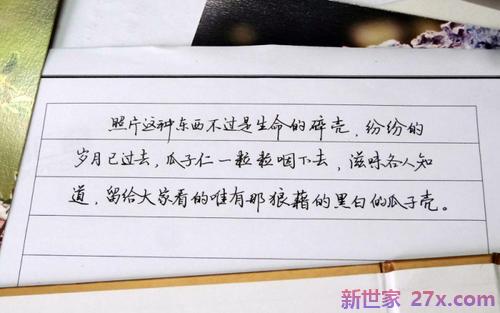 照片这种东西不过是生命的碎壳，纷纷的
岁月已过去，瓜子仁一粒粒咽下去，滋味各人知
道，留给大家看的唯有那狼藉的黑白的瓜子壳。
新世家 27x.com